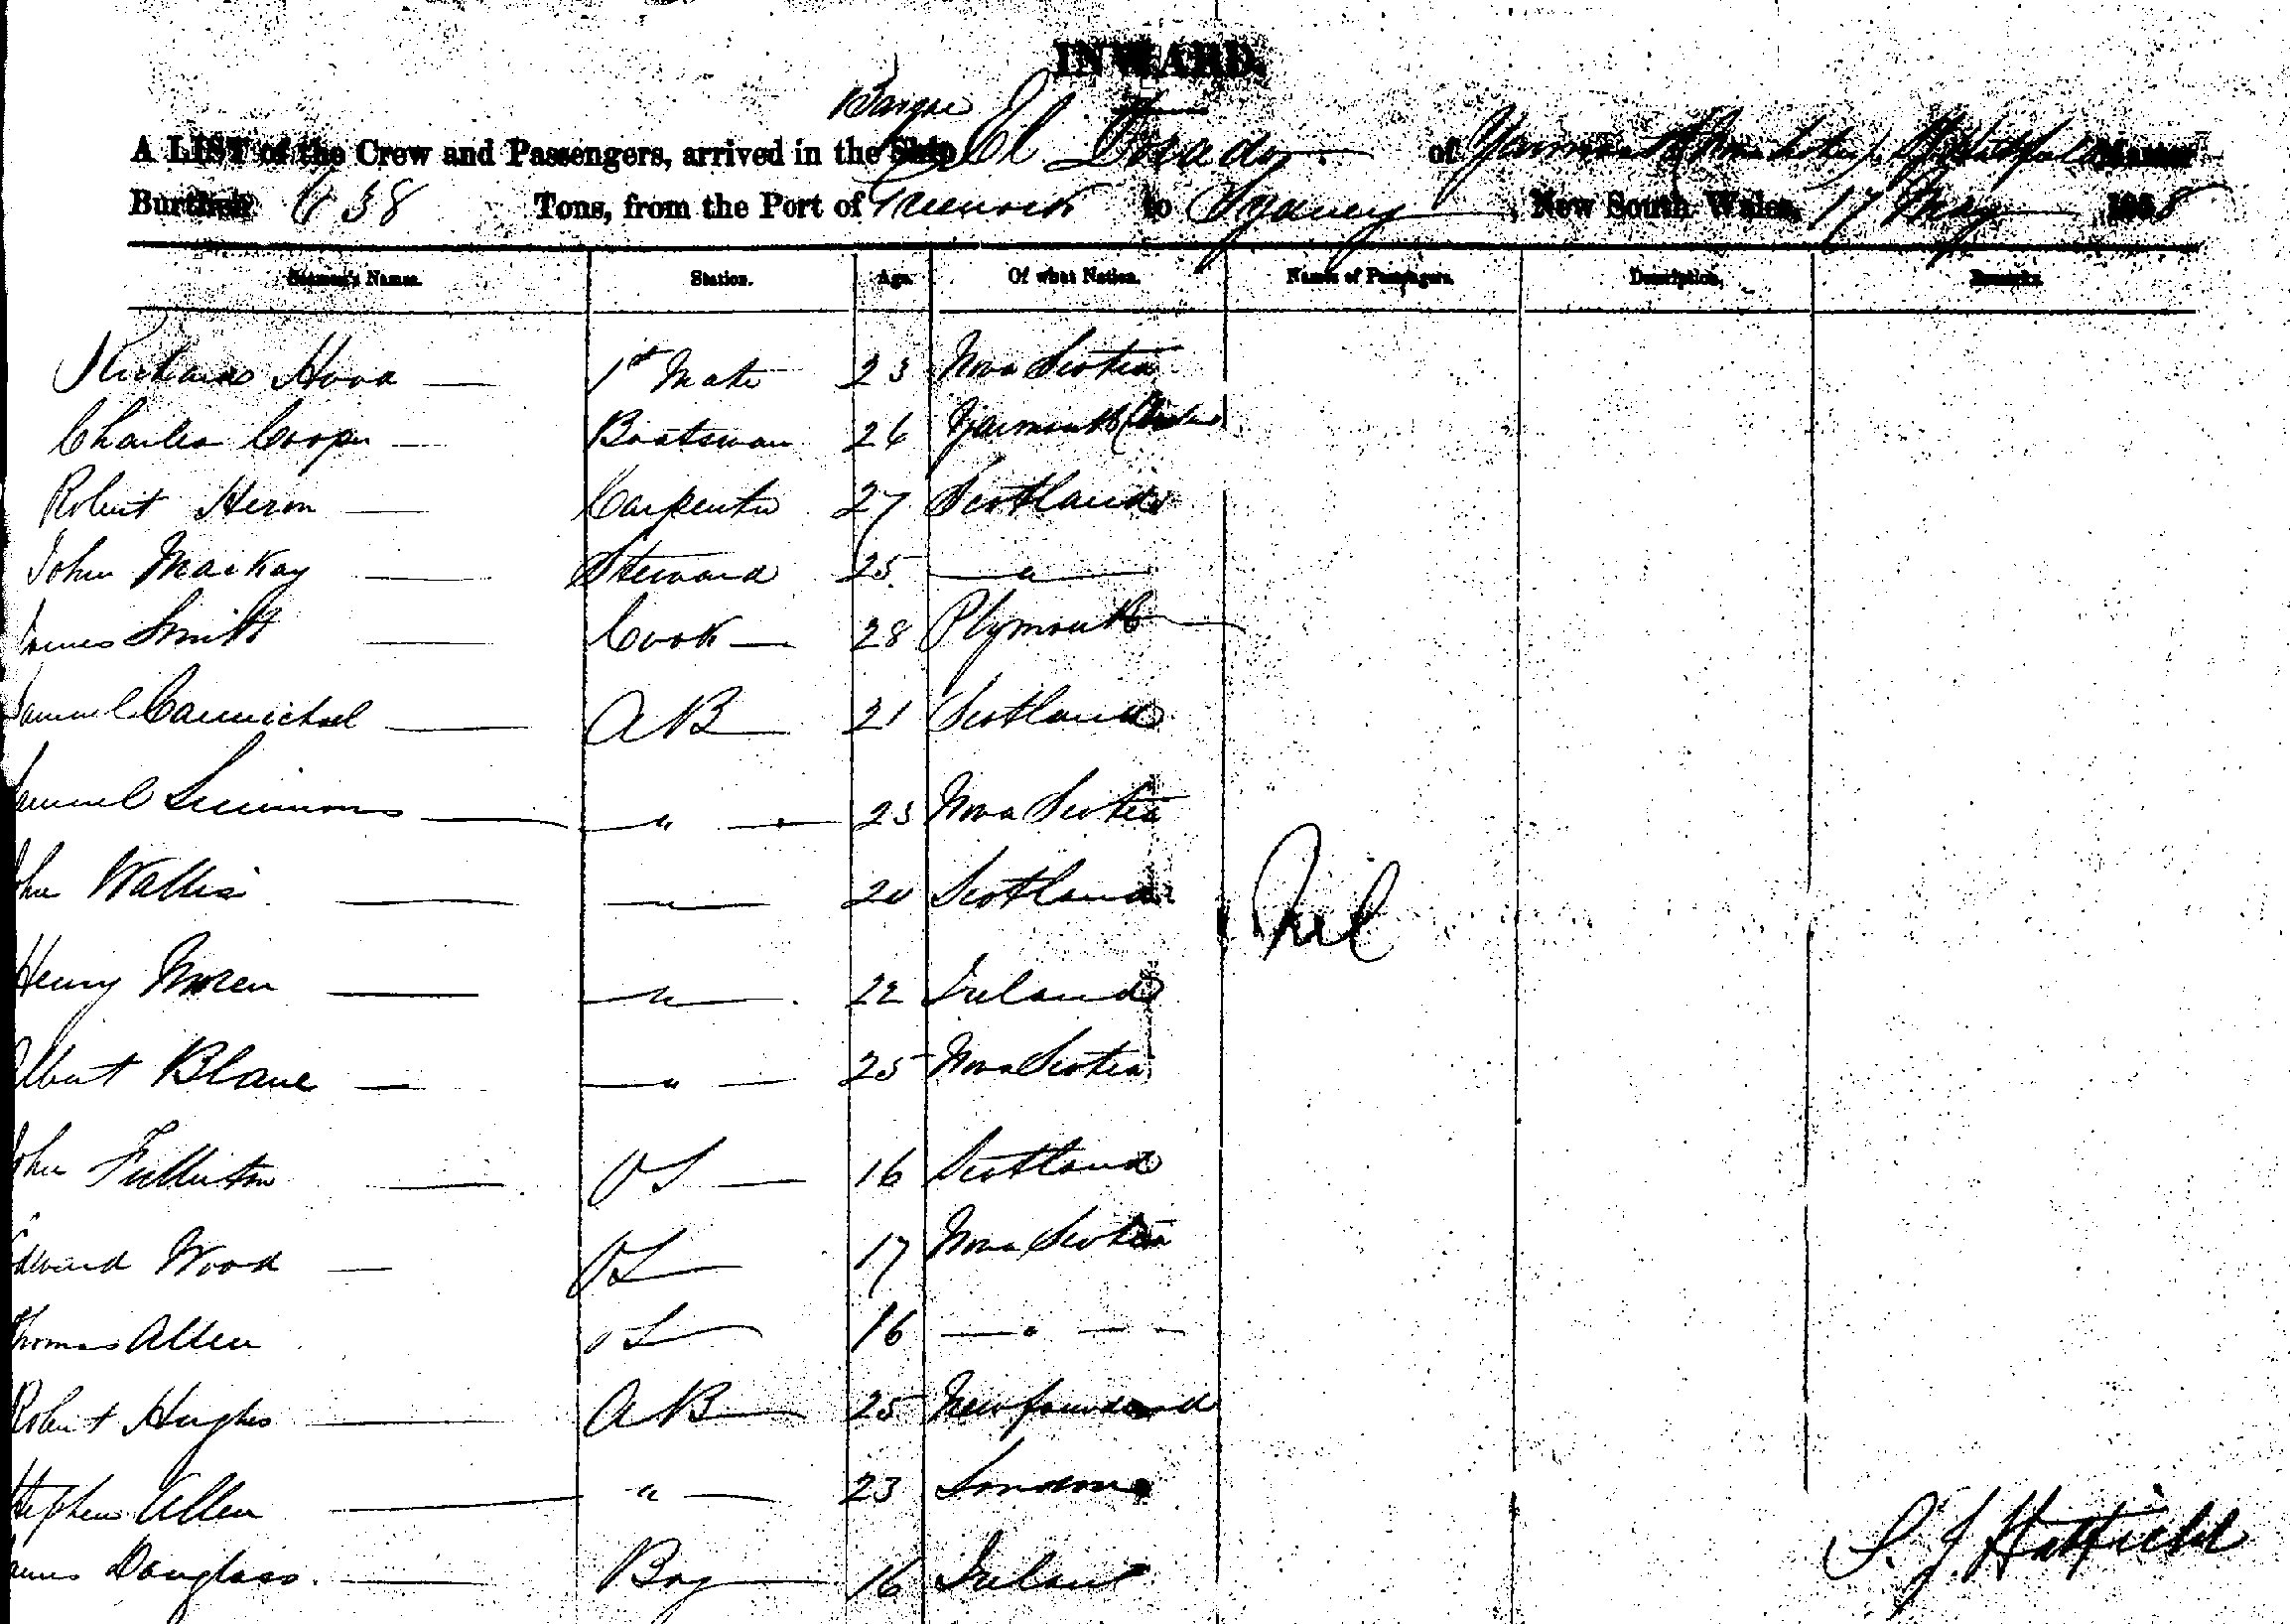 INWARD.
Barque
A LIST of the Crew and Passengers, arrived in the Ship El Dorado of Yarmouth (Nova Scotia), S. J. Hatfield Master
Burthen 638 Tons, from the Port of Greenock to Sydney, New South Wales, 17 May 1868
Seamen's Names. Station. Age. Of what Nation. Names of Passengers. Description. Remarks.
Richard Hood 1st Mate 23 Nova Scotia
Charles Cooper Boatswan 26 Yarmouth
Robert Heron Carpenter 27 Scotland
John MacKay Steward 25 "
James Smith Cook 28 Plymouth
Samuel Carmichael AB 21 Scotland
Samuel Simmons " 23 Nova Scotia
John Wallis " 20 Scotland
Nil
Henry Moren " 22 Ireland
Albert Blane " 25 Nova Scotia
John Fullerton OS 16 Scotland
Edward Wood OS 17 Nova Scotia
Thomas Allen OS 16 "
Robert Hughes AB 25 Newfoundland
Stephen Allen " 23 London
James Douglass. Boy 16 Ireland
S. J. Hatfield